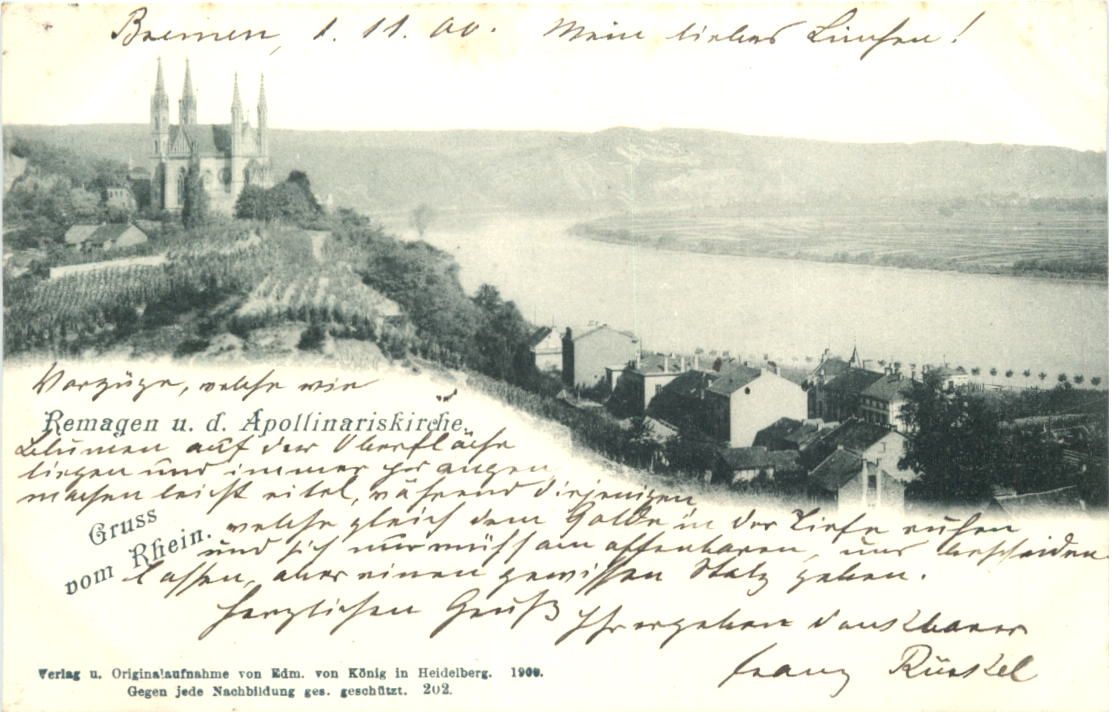 Bremen, 1. 11. 00. Mein liebes
Vorzüge, welche wie
Remagen u. d. Apollinariskirche.
Blumen auf der Oberfläche
liegen und immer
machen leicht eitel, während diejenigen
Gruss
vom Rhein.
welche gleich dem Golde in der Tiefe ruhen
und sich nur mühsam offenbaren, uns bescheiden
lassen, aber einen gewissen Stolz geben.
Herzlichen Gruß Ihr ergebener dankbarer
Franz
Verlag u. Originalaufnahme von Edm. von König in Heidelberg. 1900.
Gegen jede Nachbildung ges. geschützt. 202.